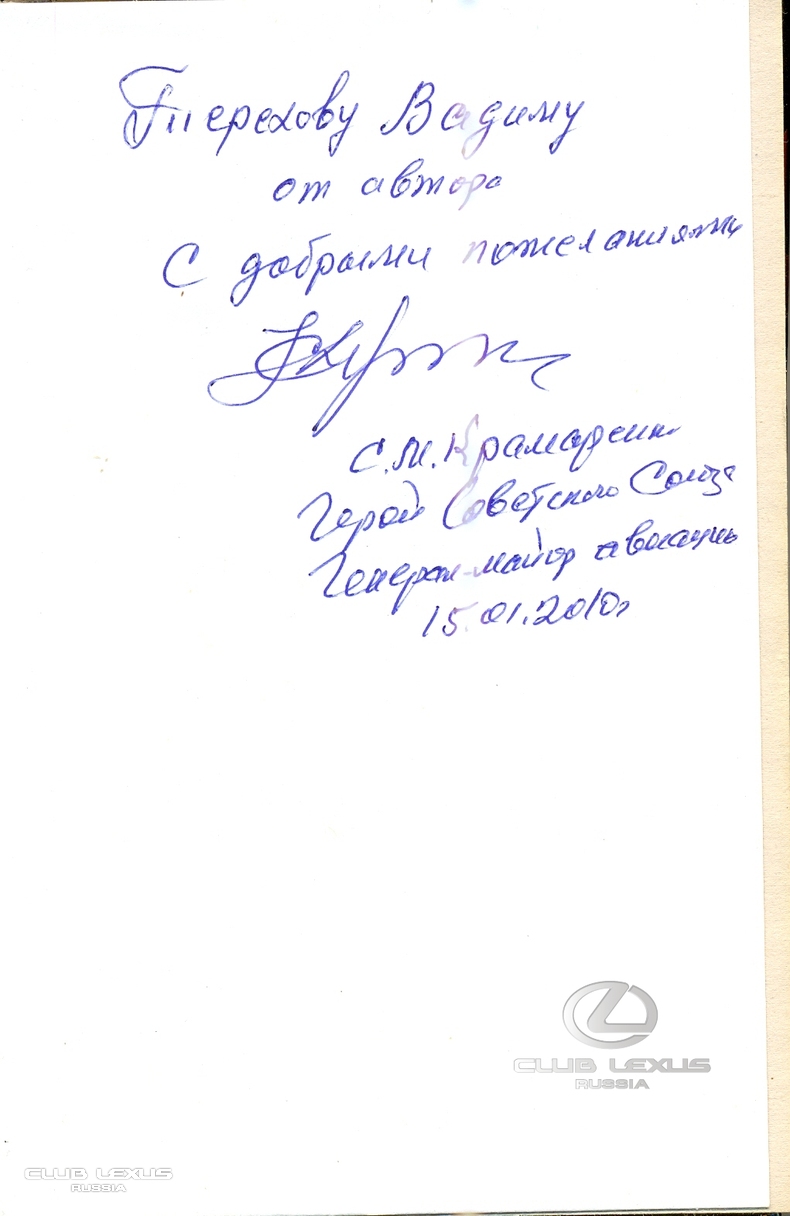 Терехову Вадиму
от автора
С добрыми пожеланиями
С.М. Крамаренко
Герой Советского Союза
Генерал-майор авиации
15.01.2010г
CLUB LEXUS
RUSSIA
CLUB LEXUS
RUSSIA